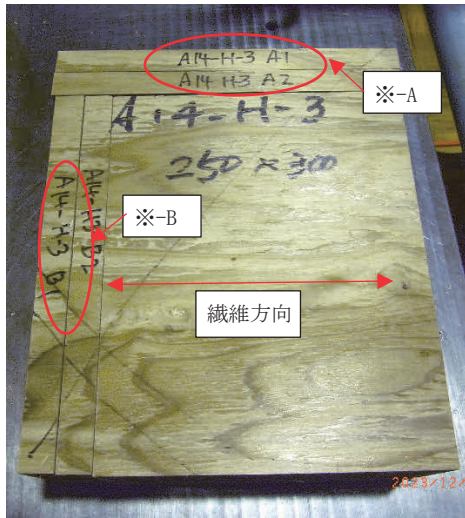 A14-H-3 A1
A14 H3 A2
※-A
A14-H-3
250×300
※-B
A14-H3 B2
A14-H3 B1
繊維方向
2023/12/